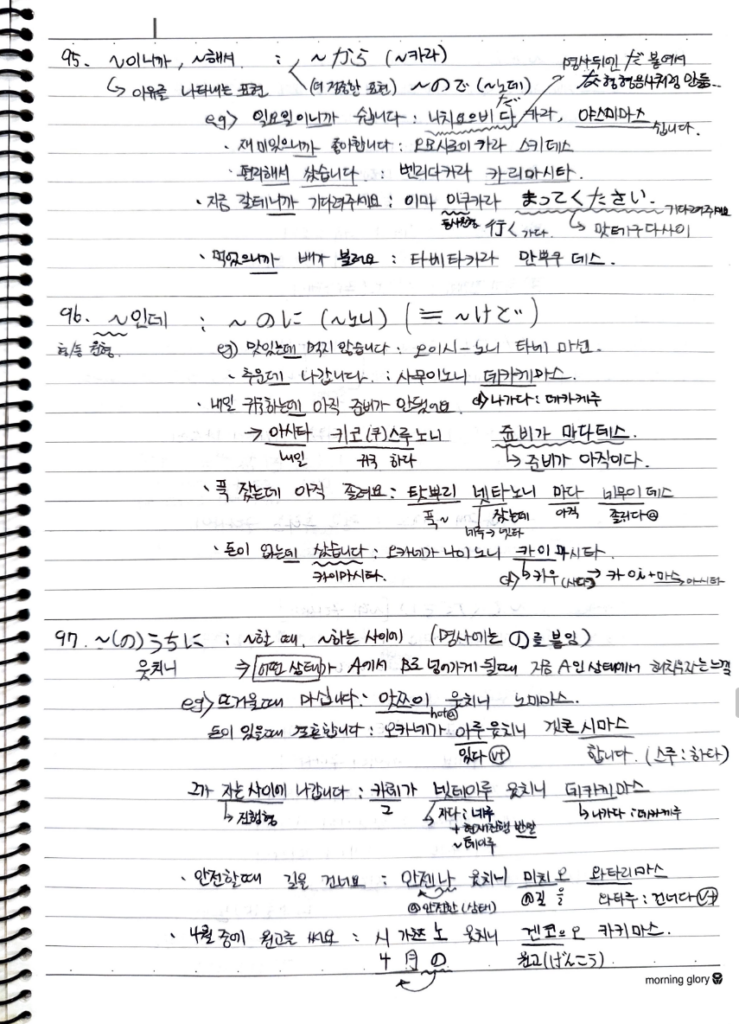 95. ~이니까, ~해서 : ~から (~카라)
↳ 이유를 나타내는 표현 (더 정중한 표현) ~ので (~노데)
명사뒤엔 だ 붙여서
な형형용사처럼 만듦...
eg> 일요일이니까 쉽니다 : 니치요으비 다 카라, 야스미마스
だ
쉽니다.
· 재미있으니까 좋아합니다 : 오모시로이 카라 스키데스
· 편리해서 샀습니다. : 벤리다카라 카리마시타.
· 지금 갈테니까 기다려주세요 : 이마 이쿠카라 まってください.
기다려주세요
동사원형 行く 가다. ↳ 맛테쿠다사이
· 먹었으니까 배가 불러요 : 타베타카라 만뿌쿠 데스.
96. ~인데 : ~のに (~노니) (≒ ~けど)
eg) 맛있는데 먹지 않습니다 : 오이시-노니 타베 마센.
· 추운데 나갑니다. : 사무이노니 데카케마스.
· 내일 귀국하는데 아직 준비가 안됐어요. 나가다 : 데카케루
→ 아시타 키코(쿠)스루노니 쥰비가 마다데스.
내일 귀국 하다 ↳ 준비가 아직이다.
· 푹 잤는데 아직 졸려요 : 탓뿌리 넷타노니 마다 네무이데스
푹~ 잤는데 아직 졸리다
네루→넷타
· 돈이 없는데 샀습니다 : 오카네가 나이노니 카이마시타.
카이마시타. ↳ 카우 (사다) → 카이+마스→마시타
97. ~(の)うちに : ~할 때, ~하는 사이에 (명사에는 の로 붙임)
웃치니 ⇒ 어떤 상태가 A에서 B로 넘어가게 될때 지금 A인 상태에서 해치우자는 느낌
eg> 뜨거울때 마십니다 : 앗쯔이 웃치니 노미마스.
hot
돈이 있을때 결혼합니다 : 오카네가 아루웃치니 겟콘시마스
있다 합니다. (스루 : 하다)
그가 자는사이에 나갑니다 : 카레가 넷테이루 웃치니 데카케마스
↳ 진행형 그 ↳ 자다 : 네루 ↳ 나가다 : 데카케루
+ 현재진행 반말
~테이루
· 안전할때 길을 건너요 : 안젠나 웃치니 미치오 와타리마스
안전한 (상태) 길 을 와타루 : 건너다
· 4월 중에 원고를 써요 : 시 가쯔 노 웃치니 겐코으오 카키마스.
4 月 の 원고(げんこう)
morning glory